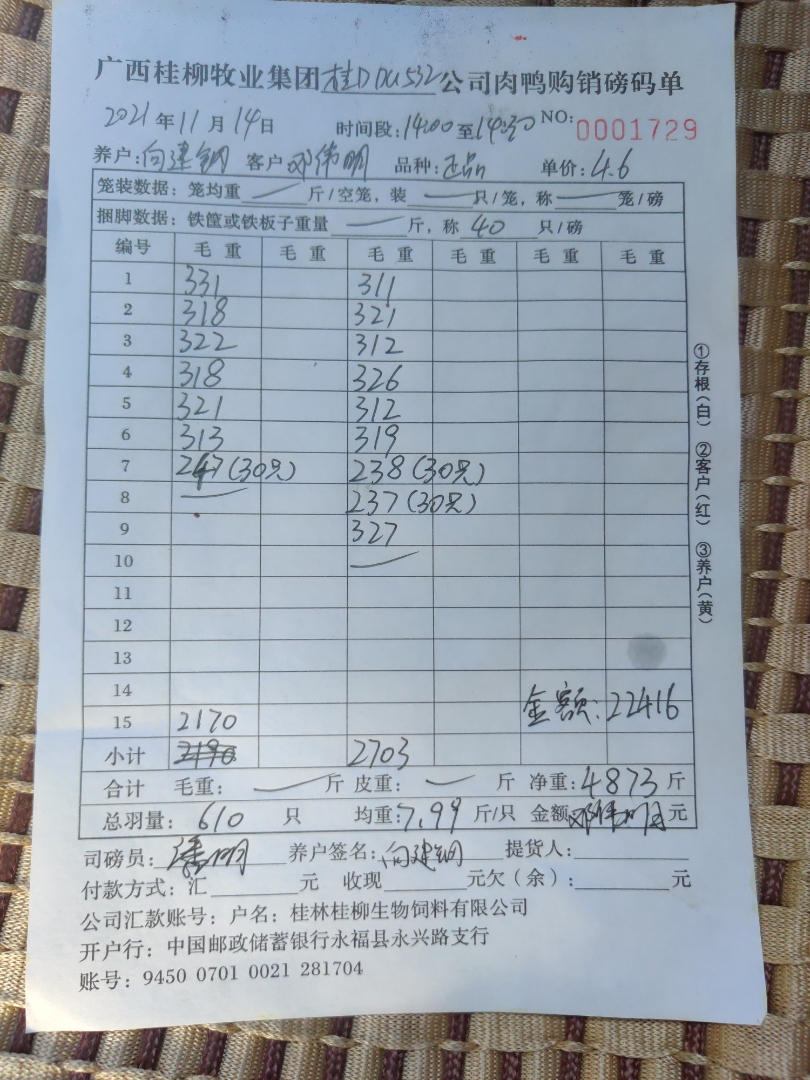 广西桂柳牧业集团桂DDU532公司肉鸭购销磅码单
2021年11月14日 时间段:14:00至14:30 NO:0001729
养户:向建钢 客户邓伟明 品种:正品 单价:4.6
笼装数据:笼均重 斤/空笼,装 只/笼,称 笼/磅
捆脚数据:铁筐或铁板子重量 斤,称40只/磅
编号 毛重 毛重 毛重 毛重 毛重 毛重
1 331 311
2 318 321
3 322 312
4 318 326
5 321 312
6 313 319
7 247(30只) 238(30只)
8 237(30只)
9 327
10
11
12
13
14
15 2170 金额:22416
小计 2190 2703
合计 毛重: 斤 皮重: 斤 净重:4873斤
总羽量:610只 均重:7.99斤/只 金额邓伟明元
司磅员: 明 养户签名:向建钢 提货人:
付款方式:汇 元 收现 元欠(余): 元
公司汇款账号:户名:桂林桂柳生物饲料有限公司
开户行:中国邮政储蓄银行永福县永兴路支行
账号:9450 0701 0021 281704
①存根(白) ②客户(红) ③养户(黄)